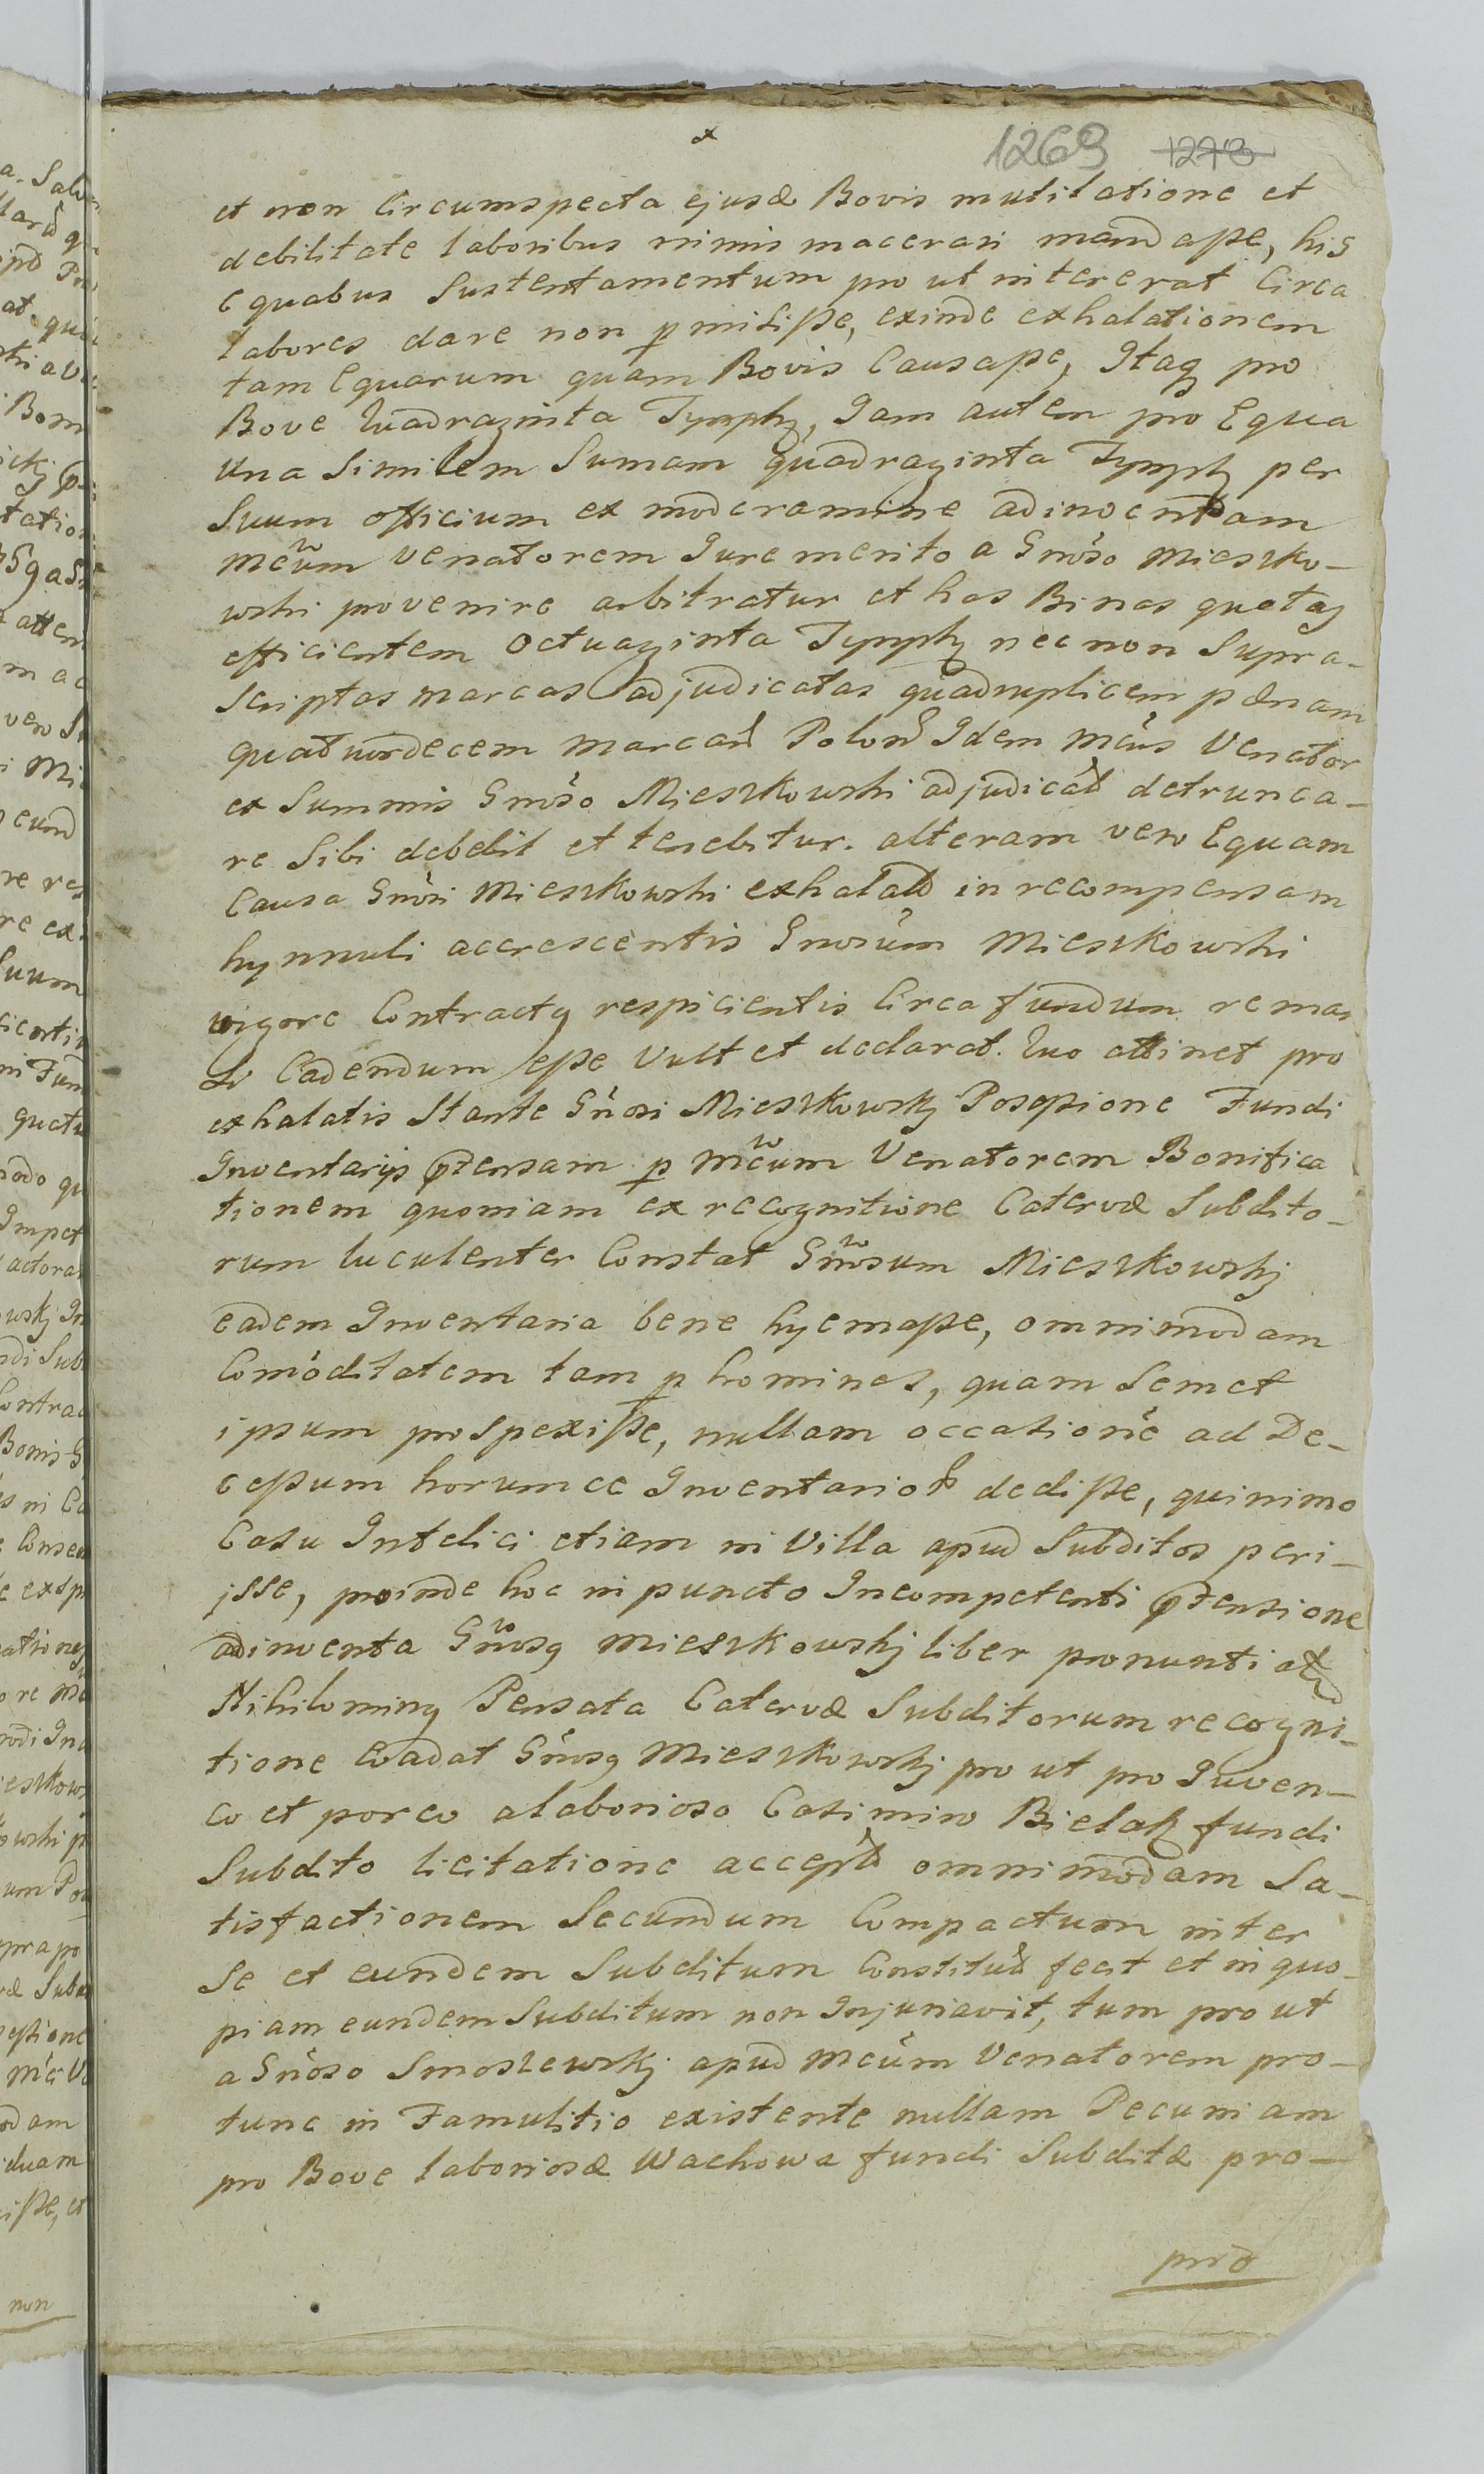 1269 1273
et non Circumspecta ejusdæ Bovis mutilatione et
debilitate laboribus nimis macerari mandasse, his
equabus Sustentamentum pro ut intererat Circa
labores dare non pmisisse, exinde exhalationem
tam Equarum quam Bovis Causasse, Itaq pro
Bove Quadraginta Tymph, Jam autem pro Equa
Una Similem Sumam quadraginta Tymph per
Suum officium ex moderamine adinventam
Mcum Venatorem Jure merito a Gnoso Mieszko-
wski provenire arbitratur et has Binas quotas
efficientem Octuaginta Tymph nec non Supra-
scriptas marcas adjudicatas quadruplicem pænam
quatuordecem Marcar Polon Idem Mcus Venator
ex Summis Gnoso Mieszkowski adjudicat detrunca-
re Sibi debebit et tenebitur. alteram vero Equam
Causa Gnosi Mieszkowski exhalat in recompensam
hynnuli accrescentis Gnosum Mieszkowski
vigore Contractq respicientis Circa fundum reman
Cadendum esse Vult et declarat. Quo attinet pro
exhalatis Stante Gnosi Mieszkowskj Possessione Fundi
Inventarijs ptensam p Mcum Venatorem Bonifica
tionem quoniam ex recognitione Catervæ Subdito-
rum luculenter Constat Gnosum Mieszkowskj
eadem Inventaria bene hyemasse, omnimodam
Comoditatem tam p homines, quam Semet
ipsum prospexisse, nullam occatione ad De-
cessum horumce Inventarior dedisse, quinimo
Casu Infelici etiam in Villa apud Subditos peri-
jsse, proinde hoc in puncto Incompetenti ptensione
adinventa Gnosq Mieszkowskj liber pronuntiat
Nihilominq Pensata Catervæ Subditorum recogni-
tione Evadat Gnosq Mieszkowskj pro ut pro Juven-
co et porco a laborioso Casimiro Bielak fundi
Subdito licitatione accept omnimodam Sa-
tisfactionem Secundum Compactum inter
Se et eundem Subditum Constitut fecit et in quo-
piam eundem Subditum non Injuriavit, tum pro ut
a Gnoso Smoszewskj apud Mcum Venatorem pro-
tunc in Famulitio existente nullam Pecuniam
pro Bove laboriosæ Wachowa fundi Subditæ pro-